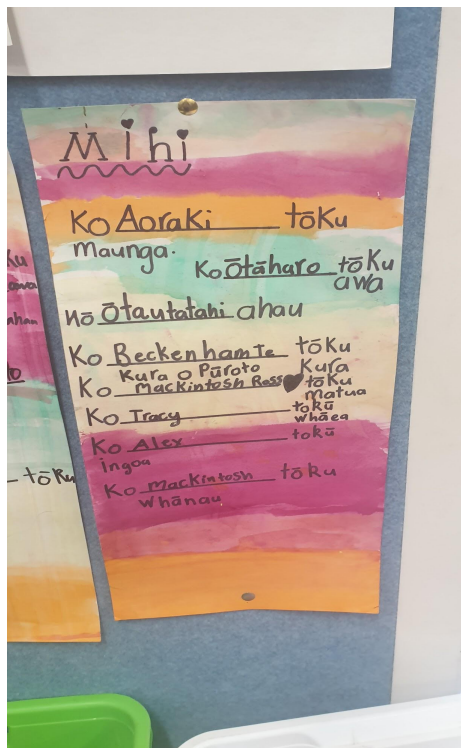 Mihi
Ko Aoraki tōku
maunga.
Ko Ōtāharo tōku
awa
Nō Ōtautatahi ahau
Ko Beckenham Te tōku
Kura o Pūroto Kura
Ko Mackintosh Ross tōku
matua
Ko Tracy tokū
whāea
Ko Alex tokū
ingoa
Ko Mackintosh tōku
Whānau
ku
awa
ahau
to
tōku